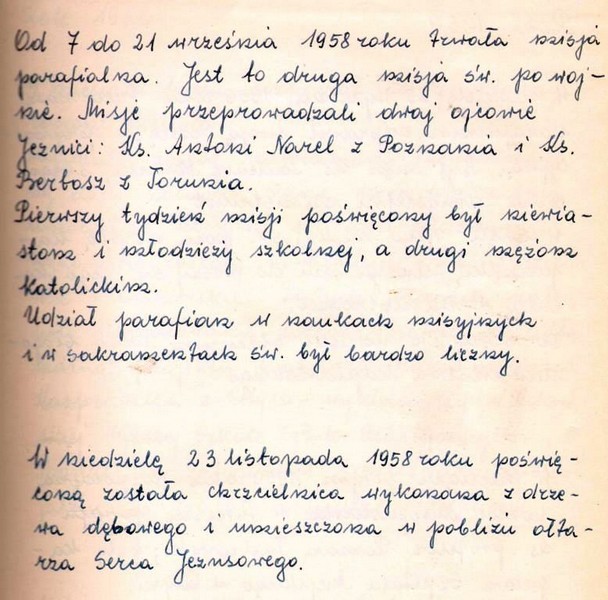 Od 7 do 21 września 1958 roku trwała misja
parafialna. Jest to druga misja św. po woj-
nie. Misje przeprowadzali dwaj ojcowie
Jezuici: Ks. Antoni Narel z Poznania i Ks.
Berbosz z Torunia.
Pierwszy tydzień misji poświęcony był niewia-
stom i młodzieży szkolnej, a drugi mężom
katolickim.
Udział parafian w naukach misyjnych
i w sakramentach św. był bardzo liczny.
W niedzielę 23 listopada 1958 roku poświę-
coną została chrzcielnica wykonana z drze-
wa dębowego i umieszczona w pobliżu ołta-
rza Serca Jezusowego.